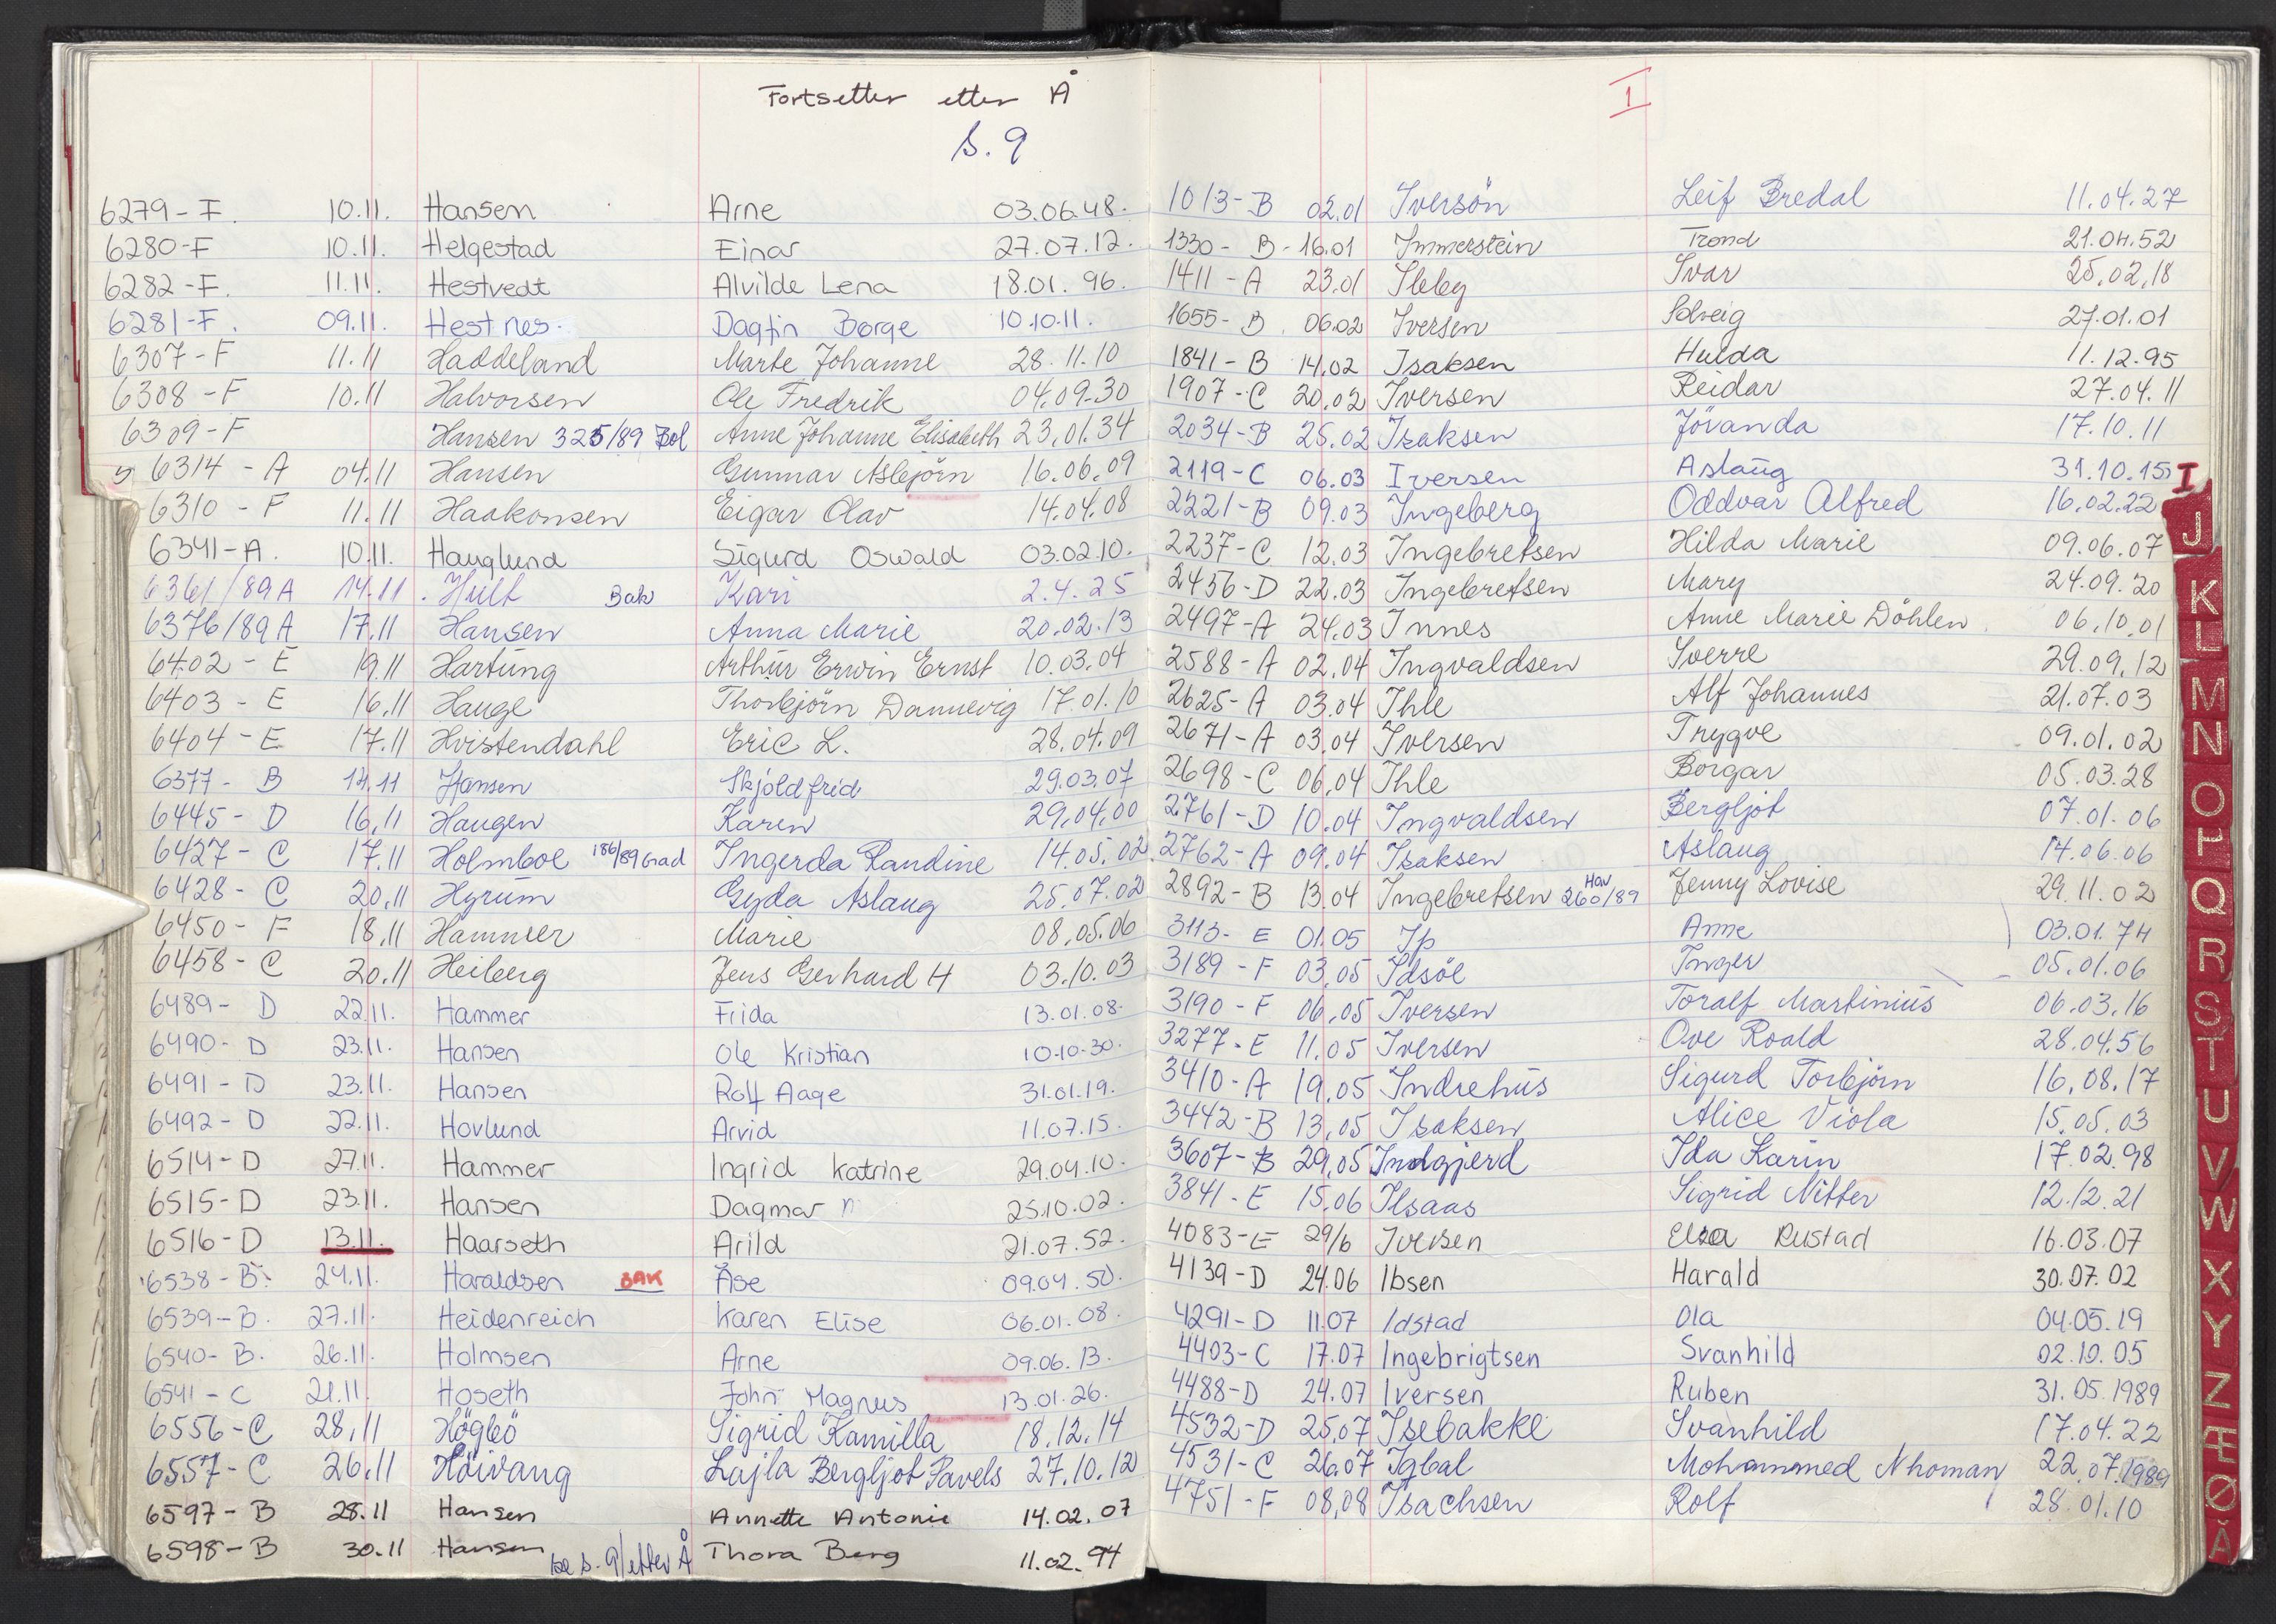 Fortsetter etter Å
S. 9
6279-F. 10.11. Hansen Arne 03.06.48.
6280-F 10.11. Helgestad Einar 27.07.12.
6282-F. 11.11. Hestvedt Alvilde Lena 18.01.96.
6281-F. 09.11. Hestnes. Dagfin Borge 10.10.11.
6307-F 11.11 Haddeland Marte Johanne 28.11.10
6308-F 10.11 Halvorsen Ole Fredrik 04.09.30
6309-F Hansen 325/89 Bol Anne Johanne Elisabeth 23.01.34
6314-A 04.11 Hansen Gunnar Asbjörn 16.06.09
6310-F 11.11 Haakonsen Eigar Olav 14.04.08
6341-A. 10.11. Hauglund Sigurd Oswald 03.02.10.
6361/89A 14.11. Hult Bak Kari 2.4.25
6376/89A 17.11 Hansen Anna Marie 20.02.13
6402-E 19.11 Hartung Arthur Erwin Ernst 10.03.04
6403-E 16.11 Hauge Thorbjörn Dannevig 17.01.10
6404-E 17.11 Hvistendahl Eric L. 28.04.09
6377-B 14.11 Hansen Skjoldfrid 29.03.07
6445-D 16.11 Haugen Karen 29.04.00
6427-C 17.11 Holmboe 186/89 Grad Ingerda Randine 14.05.02
6428-C 20.11 Hyrum Gyda Aslaug 25.07.02
6450-F 18.11 Hammer Marie 08.05.06
6458-C 20.11 Heiberg Jens Gerhard H 03.10.03
6489-D 22.11. Hammer Frida 13.01.08.
6490-D 23.11. Hansen Ole Kristian 10.10.30.
6491-D 23.11. Hansen Rolf Aage 31.01.19.
6492-D 22.11. Hovlund Arvid 11.07.15.
6514-D 27.11. Hammer Ingrid Katrine 29.04.10.
6515-D 23.11. Hansen Dagmar 25.10.02.
6516-D 13.11. Haarseth Arild 21.07.52.
6538-B. 24.11. Haraldsen BAK Åse 09.04.50.
6539-B. 27.11. Heidenreich Karen Elise 06.01.08.
6540-B. 26.11. Holmsen Arne 09.06.13.
6541-C 21.11. Hoseth John Magnus 13.01.26.
6556-C 28.11 Högbö Sigrid Kamilla 18.12.14
6557-C 26.11 Höivang Lajla Bergljot Pavels 27.10.12
6597-B 28.11 Hansen Annette Antonie 14.02.07
6598-B 30.11 Hansen Thora Berg 11.02.94
se s. 9/etter Å
I
1013-B 02.01 Iversön Leif Bredal 11.04.27
1330-B-16.01 Immerstein Trond 21.04.52
1411-A 23.01 Ileby Ivar 25.02.18
1655-B 06.02 Iversen Solveig 27.01.01
1841-B 14.02 Isaksen Hulda 11.12.95
1907-C 20.02 Iversen Reidar 27.04.11
2034-B 25.02 Isaksen Jövanda 17.10.11
2119-C 06.03 Iversen Aslaug 31.10.15
2221-B 09.03 Ingeberg Oddvar Alfred 16.02.22
2237-C 12.03 Ingebretsen Hilda Marie 09.06.07
2456-D 22.03 Ingebretsen Mary 24.09.20
2497-A 24.03 Innes Anne Marie Döhlen 06.10.01
2588-A 02.04 Ingvaldsen Sverre 29.09.12
2625-A 03.04 Ihle Alf Johannes 21.07.03
2671-A 03.04 Iversen Trygve 09.01.02
2698-C 06.04 Ihle Borgar 05.03.28
2761-D 10.04 Ingvaldsen Bergljot 07.01.06
2762-A 09.04 Isaksen Aslaug 14.06.06
2892-B 13.04 Ingebretsen Hav 260/89 Jenny Lovise 29.11.02
3113-E 01.05 Ip Anne 03.01.74
3189-F 03.05 Idsöe Inger 05.01.06
3190-F 06.05 Iversen Toralf Martinius 06.03.16
3277-E 11.05 Iversen Ove Roald 28.04.56
3410-A 19.05 Indrehus Sigurd Torbjörn 16.08.17
3442-B 13.05 Isaksen Alice Viola 15.05.03
3607-B 29.05 Indgjerd Ida Karin 17.02.98
3841-E 15.06 Ilsaas Sigrid Nitter 12.12.21
4083-E 29/6 Iversen Elsa Rustad 16.03.07
4139-D 24.06 Ibsen Harald 30.07.02
4291-D 11.07 Idstad Ola 04.05.19
4403-C 17.07 Ingebrigtsen Svanhild 02.10.05
4488-D 24.07 Iversen Ruben 31.05.1989
4532-D 25.07 Isebakke Svanhild 17.04.22
4531-C 26.07 Iqbal Mohammed Nhoman 22.07.1989
4751-F 08.08 Isachsen Rolf 28.01.10
I
J
K
L
M
N
O
P
Q
R
S
T
U
V
W
X
Y
Z
Æ
Ø
Å